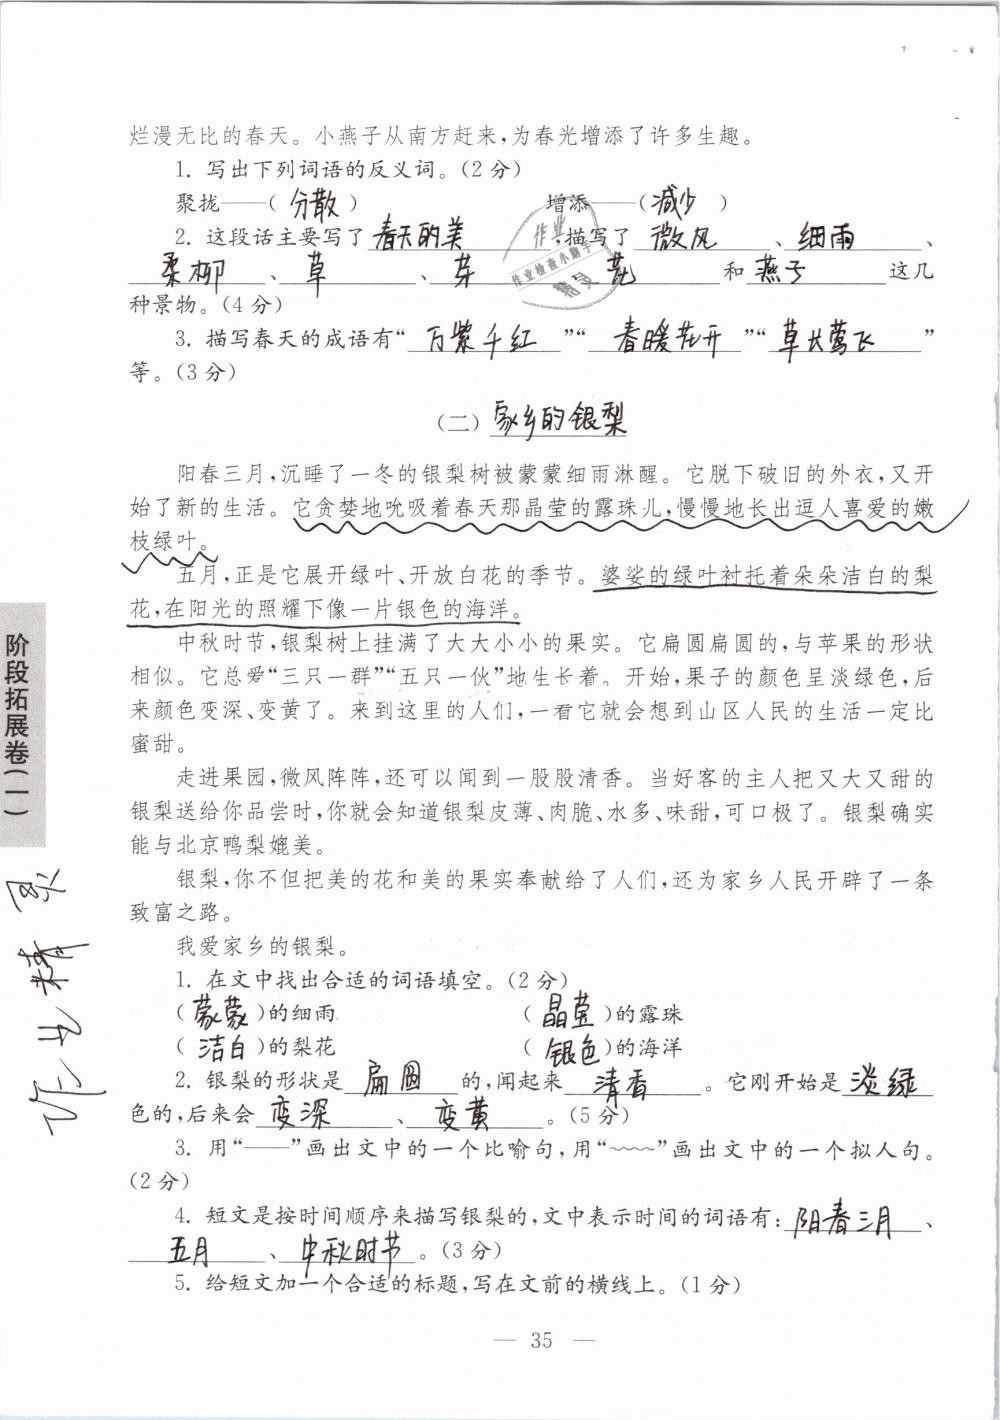 烂漫无比的春天。小燕子从南方赶来,为春光增添了许多生趣。
1. 写出下列词语的反义词。(2分)
聚拢——(分散) 增添——(减少)
2. 这段话主要写了 春天的美 ,描写了 微风 、 细雨 、
柔柳 、 草 、 芽 花 和 燕子 这几
种景物。(4分)
3. 描写春天的成语有“ 万紫千红 ”“ 春暖花开 ”“ 草长莺飞 ”
等。(3分)
(二) 家乡的银梨
阳春三月,沉睡了一冬的银梨树被蒙蒙细雨淋醒。它脱下破旧的外衣,又开
始了新的生活。它贪婪地吮吸着春天那晶莹的露珠儿,慢慢地长出逗人喜爱的嫩
枝绿叶。
五月,正是它展开绿叶、开放白花的季节。婆娑的绿叶衬托着朵朵洁白的梨
花,在阳光的照耀下像一片银色的海洋。
中秋时节,银梨树上挂满了大大小小的果实。它扁圆扁圆的,与苹果的形状
相似。它总爱“三只一群”“五只一伙”地生长着。开始,果子的颜色呈淡绿色,后
来颜色变深、变黄了。来到这里的人们,一看它就会想到山区人民的生活一定比
蜜甜。
走进果园,微风阵阵,还可以闻到一股股清香。当好客的主人把又大又甜的
银梨送给你品尝时,你就会知道银梨皮薄、肉脆、水多、味甜,可口极了。银梨确实
能与北京鸭梨媲美。
银梨,你不但把美的花和美的果实奉献给了人们,还为家乡人民开辟了一条
致富之路。
我爱家乡的银梨。
1. 在文中找出合适的词语填空。(2分)
(蒙蒙)的细雨 (晶莹)的露珠
(洁白)的梨花 (银色)的海洋
2. 银梨的形状是 扁圆 的,闻起来 清香 。它刚开始是 淡绿
色的,后来会 变深 、 变黄 。(5分)
3. 用“——”画出文中的一个比喻句,用“﹏﹏”画出文中的一个拟人句。
(2分)
4. 短文是按时间顺序来描写银梨的,文中表示时间的词语有: 阳春三月 、
五月 、 中秋时节 。(3分)
5. 给短文加一个合适的标题,写在文前的横线上。(1分)
— 35 —
阶段拓展卷(一)
作业精灵
作业
作业检查小助手
精灵